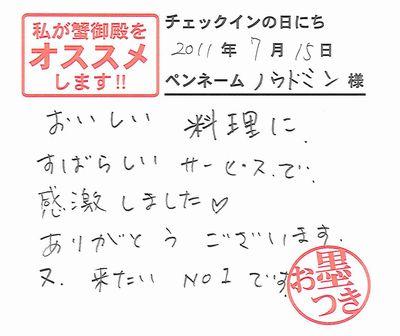 私が蟹御殿を
オススメ
します!!
チェックインの日にち
2011年7月15日
ペンネーム ノウドミン 様
おいしい 料理に
すばらしい サービスで、
感激しました♡
ありがとう ございます。
又、来たい NO1です
お墨つき